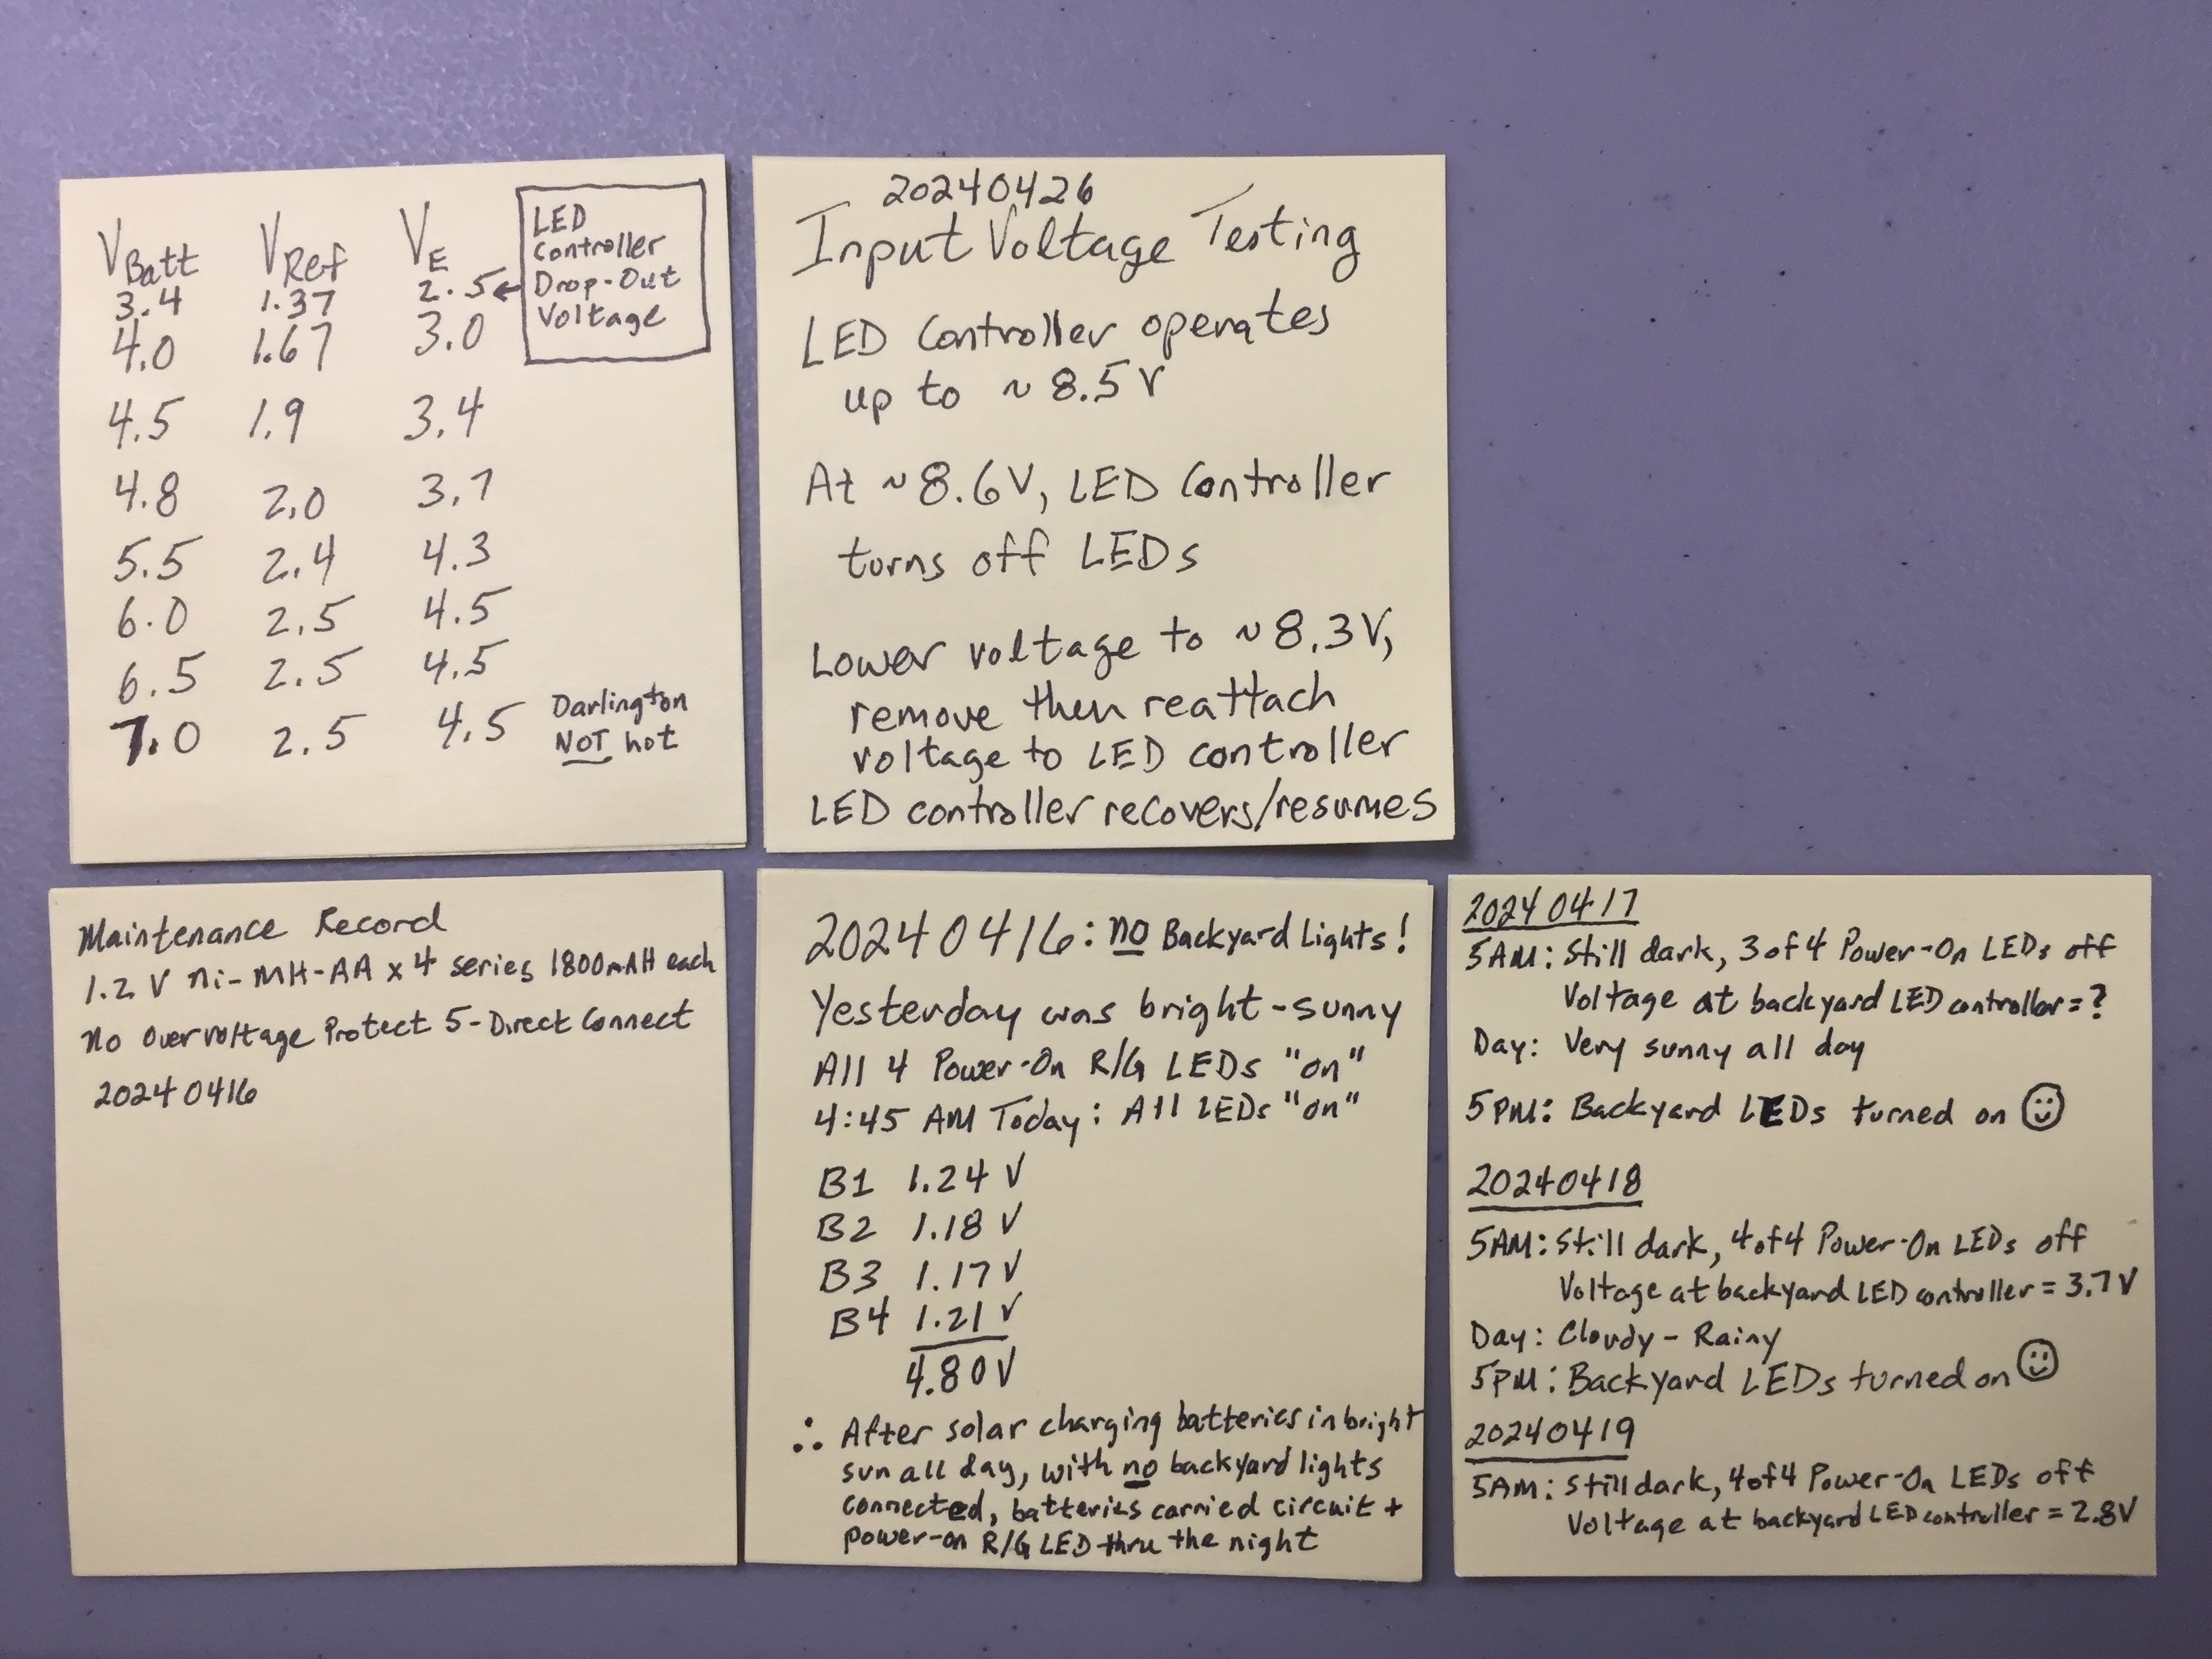 VBatt VRef VE
3.4 1.37 2.5 ←
4.0 1.67 3.0
4.5 1.9 3.4
4.8 2.0 3.7
5.5 2.4 4.3
6.0 2.5 4.5
6.5 2.5 4.5
7.0 2.5 4.5
LED
Controller
Drop-Out
Voltage
Darlington
NOT hot
20240426
Input Voltage Testing
LED Controller operates
up to ~8.5V
At ~8.6V, LED Controller
turns off LEDs
Lower voltage to ~8.3V,
remove then reattach
voltage to LED controller
LED controller recovers/resumes
Maintenance Record
1.2 V Ni-MH-AA x 4 series 1800mAH each
No Overvoltage Protect 5-Direct Connect
20240416
20240416: no Backyard Lights!
Yesterday was bright-sunny
All 4 Power-On R/G LEDs "on"
4:45 AM Today: All LEDs "on"
B1 1.24 V
B2 1.18 V
B3 1.17 V
B4 1.21 V
4.80V
∴ After solar charging batteries in bright
sun all day, with no backyard lights
connected, batteries carried circuit +
power-on R/G LED thru the night
20240417
5AM: Still dark, 3 of 4 Power-On LEDs off
Voltage at backyard LED controller = ?
Day: Very sunny all day
5PM: Backyard LEDs turned on ☺
20240418
5AM: Still dark, 4 of 4 Power-On LEDs off
Voltage at backyard LED controller = 3.7V
Day: Cloudy - Rainy
5PM: Backyard LEDs turned on ☺
20240419
5AM: Still dark, 4 of 4 Power-On LEDs off
Voltage at backyard LED controller = 2.8V